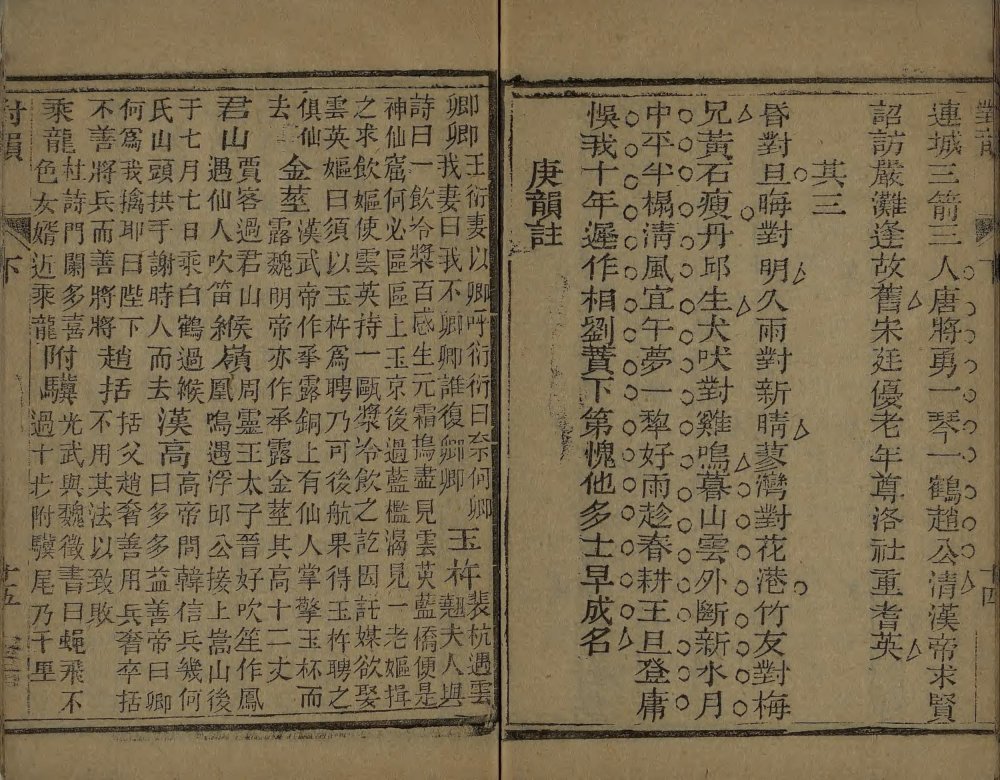 對韻
十四
連城三箭三人唐將勇一琴一鶴趙公清漢帝求賢
詔訪嚴灘逢故舊宋廷優老年尊洛社重耆英
其三
昏對旦晦對明久雨對新晴蓼灣對花港竹友對梅
兄黃石瘦丹邱生犬吠對雞鳴暮山雲外斷新水月
中平半榻清風宜午夢一犂好雨趁春耕王旦登庸
悞我十年遲作相劉蕡下第愧他多士早成名
庚韻註
卿卿王衍妻以卿呼衍衍曰奈何卿我妻曰我不卿卿誰復卿卿玉杵裴杭遇雲翹夫人與
詩曰一飲冷漿百感生元霜搗盡見雲英藍僑便是
神仙窟何必區區上玉京後過藍檻渴見一老嫗揖
之求飲嫗使雲英持一甌漿冷飲之訖因託媒欲娶
雲英嫗曰須以玉杵為聘乃可後航果得玉杵聘之
俱仙去金莖漢武帝作承露銅上有仙人掌擎玉杯而露魏明帝亦作承露金莖其高十二丈
君山賈客過君山遇仙人吹笛緱嶺周靈王太子晉好吹笙作鳳凰鳴遇浮邱公接上嵩山後
于七月七日乘白鶴過緱氏山頭拱手謝時人而去漢高高帝問韓信兵幾何曰多多益善帝曰卿
何為我擒耶曰陛下不善將兵而善將將趙括括父趙奢善用兵奢卒括不用其法以致敗
乘龍杜詩門闌多喜色女婿近乘龍附驥光武與魏徵書曰蠅飛不過十步附驥尾乃千里
對韻
下
十五